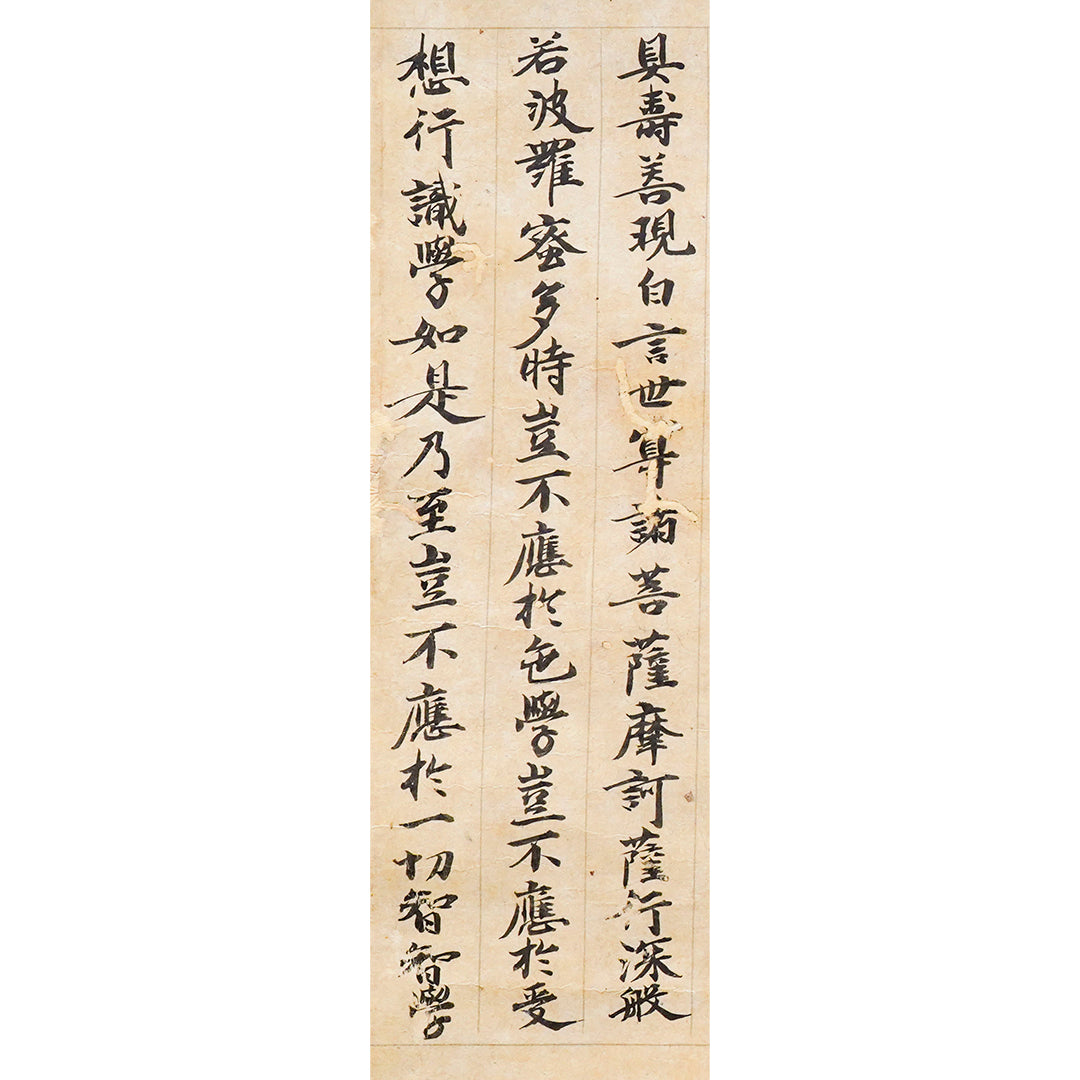 具壽善現白言世尊諸菩薩摩訶薩行深般
若波羅蜜多時豈不應於色學豈不應於受
想行識學如是乃至豈不應於一切智智學